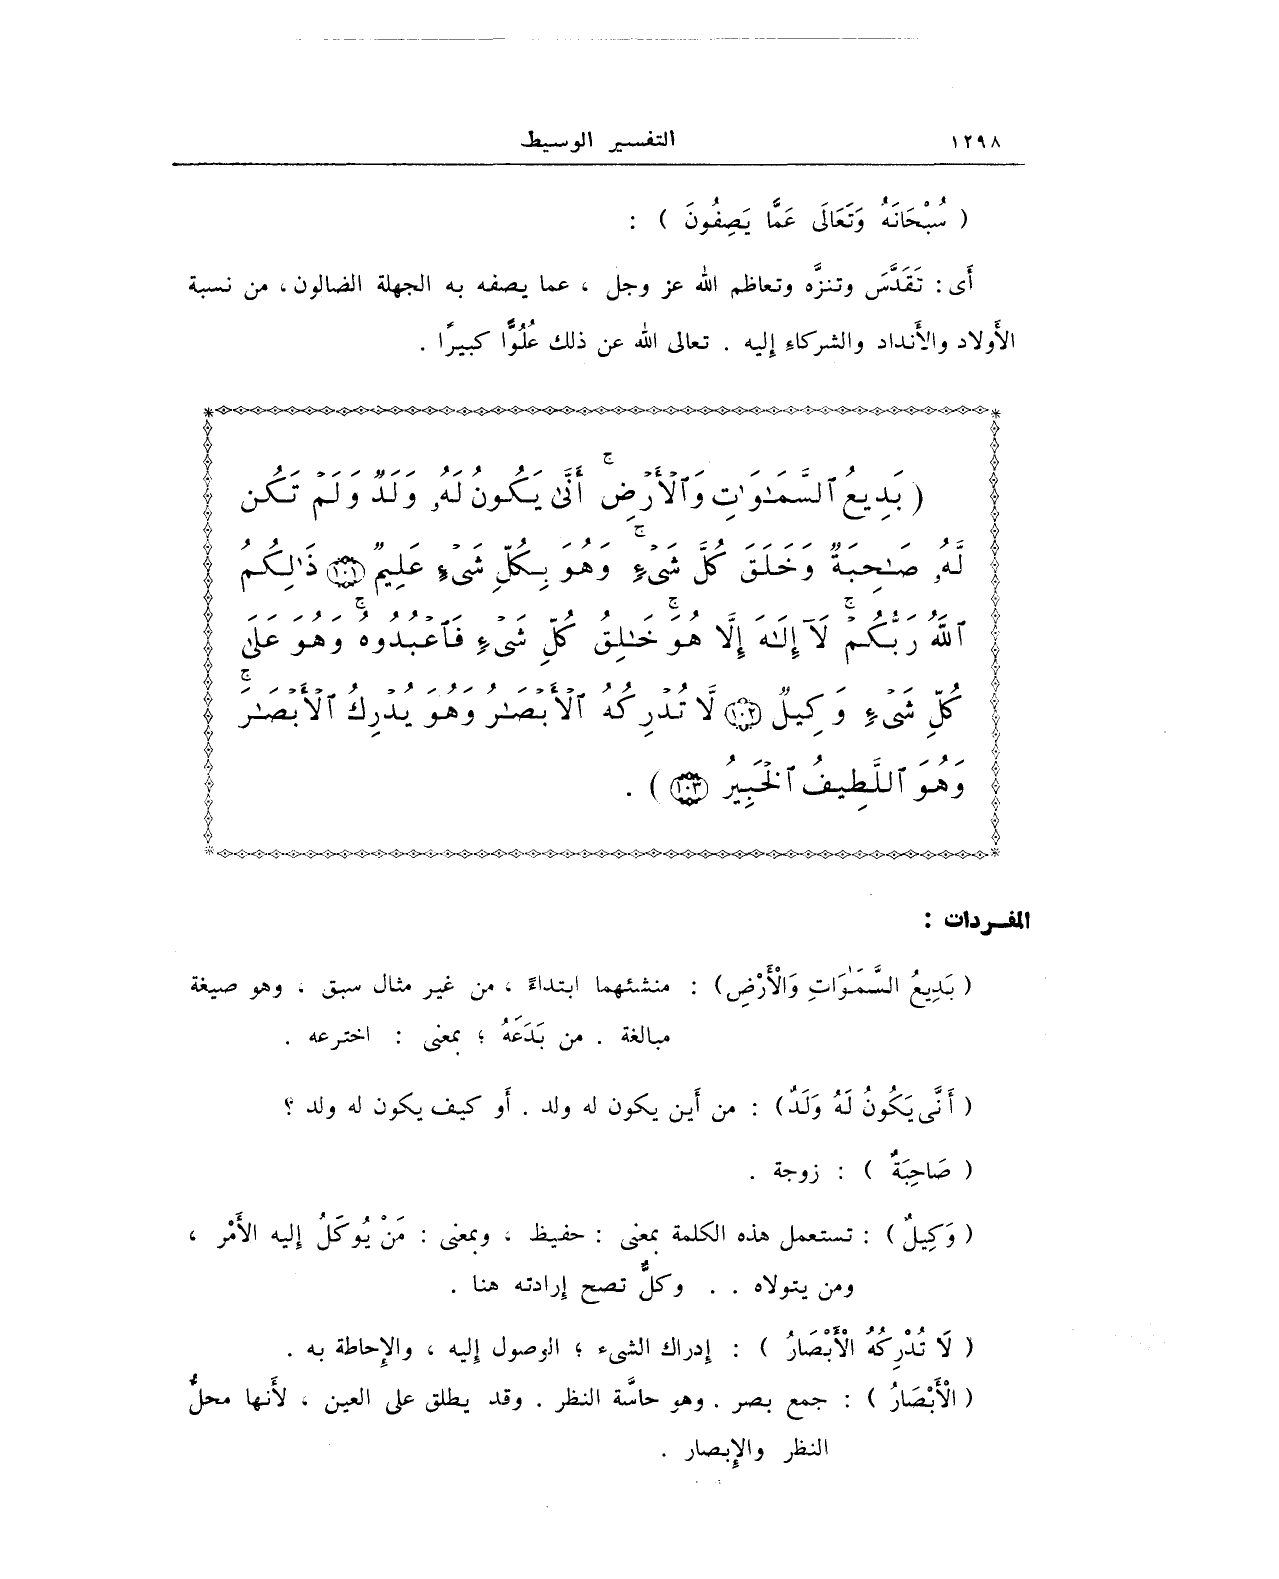 ١٢٩٨ التفسير الوسيط
( سُبْحَانَهُ وَتَعَالَى عَمَّا يَصِفُونَ ) :
أَى : تَقَدَّسَ وتنزَّه وتعاظم الله عز وجل ، عما يصفه به الجهلة الضالون ، من نسبة
الأَولاد والأَنداد والشركاءِ إليه . تعالى الله عن ذلك عُلُوًّا كبيرًا .
( بَدِيعُ ٱلسَّمَٰوَٰتِ وَٱلْأَرْضِ ۖ أَنَّىٰ يَكُونُ لَهُۥ وَلَدٌ وَلَمْ تَكُن
لَّهُۥ صَٰحِبَةٌ ۖ وَخَلَقَ كُلَّ شَىْءٍ ۖ وَهُوَ بِكُلِّ شَىْءٍ عَلِيمٌ ﴿١٠١﴾ ذَٰلِكُمُ
ٱللَّهُ رَبُّكُمْ ۖ لَآ إِلَٰهَ إِلَّا هُوَ ۖ خَٰلِقُ كُلِّ شَىْءٍ فَٱعْبُدُوهُ ۚ وَهُوَ عَلَىٰ
كُلِّ شَىْءٍ وَكِيلٌ ﴿١٠٢﴾ لَّا تُدْرِكُهُ ٱلْأَبْصَٰرُ وَهُوَ يُدْرِكُ ٱلْأَبْصَٰرَ ۖ
وَهُوَ ٱللَّطِيفُ ٱلْخَبِيرُ ﴿١٠٣﴾ ) .
المفـردات :
( بَدِيعُ السَّمَٰوَاتِ وَالْأَرْضِ ) : منشئهما ابتداءً ، من غير مثال سبق ، وهو صيغة
مبالغة . من بَدَعَهُ ؛ بمعنى : اخترعه .
( أَنَّى يَكُونُ لَهُ وَلَدٌ ) : من أَين يكون له ولد . أَو كيف يكون له ولد ؟
( صَاحِبَةٌ ) : زوجة .
( وَكِيلٌ ) : تستعمل هذه الكلمة بمعنى : حفيظ ، وبمعنى : مَنْ يُوكَلُ إليه الأَمْر ،
ومن يتولاه . . وكلٌّ تصح إرادته هنا .
( لَا تُدْرِكُهُ الْأَبْصَارُ ) : إدراك الشىء ؛ الوصول إليه ، والإحاطة به .
( الْأَبْصَارُ ) : جمع بصر . وهو حاسَّة النظر . وقد يطلق على العين ، لأَنها محلُّ
النظر والإبصار .